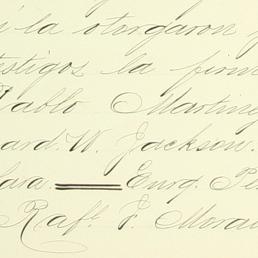 í la otorgaron
estigos la firm
Pablo Martinez
ard. W. Jackson.
lara Enrq. Pe
Raf.l F. Mora